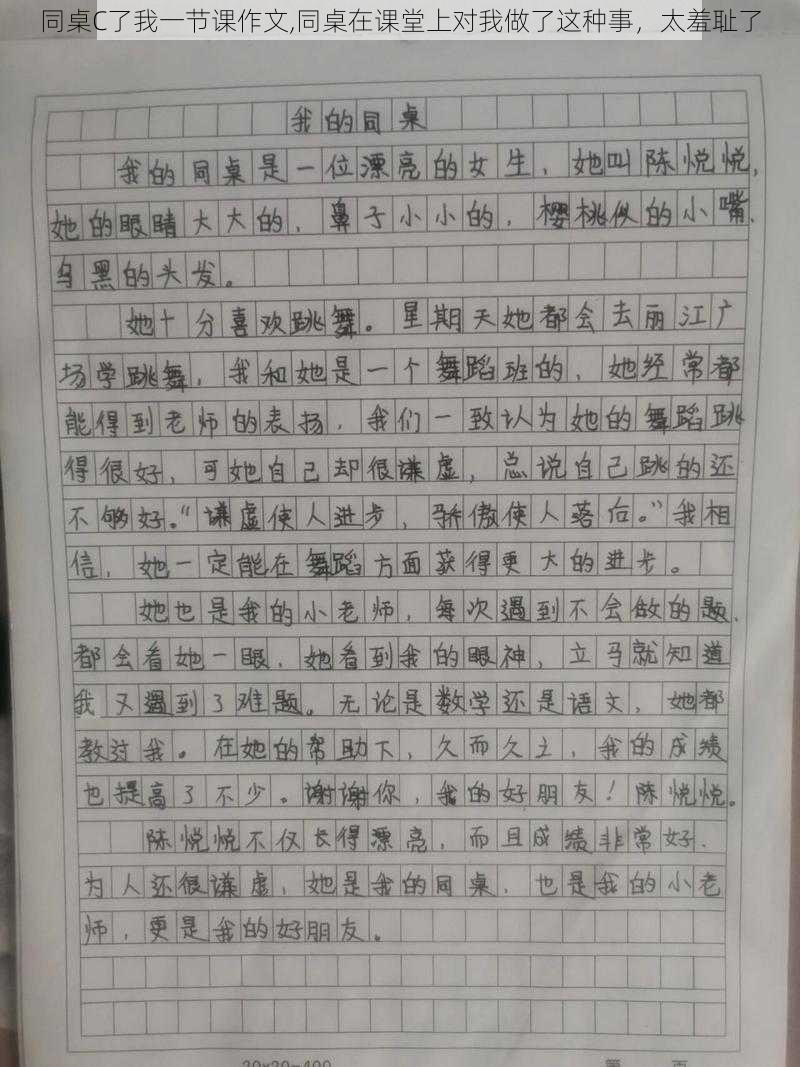 同桌C了我一节课作文,同桌在课堂上对我做了这种事，太羞耻了
我的同桌
我的同桌是一位漂亮的女生，她叫陈悦悦，
她的眼睛大大的，鼻子小小的，樱桃似的小嘴，
乌黑的头发。
她十分喜欢跳舞。星期天她都会去丽江广
场学跳舞，我和她是一个舞蹈班的，她经常都
能得到老师的表扬，我们一致认为她的舞蹈跳
得很好，可她自己却很谦虚，总说自己跳的还
不够好。“谦虚使人进步，骄傲使人落后。”我相
信，她一定能在舞蹈方面获得更大的进步。
她也是我的小老师，每次遇到不会做的题，
都会看她一眼，她看到我的眼神，立马就知道
我又遇到了难题。无论是数学还是语文，她都
教过我。在她的帮助下，久而久之，我的成绩
也提高了不少。谢谢你，我的好朋友！陈悦悦。
陈悦悦不仅长得漂亮，而且成绩非常好，
为人还很谦虚，她是我的同桌，也是我的小老
师，更是我的好朋友。
20×20=400 第 页